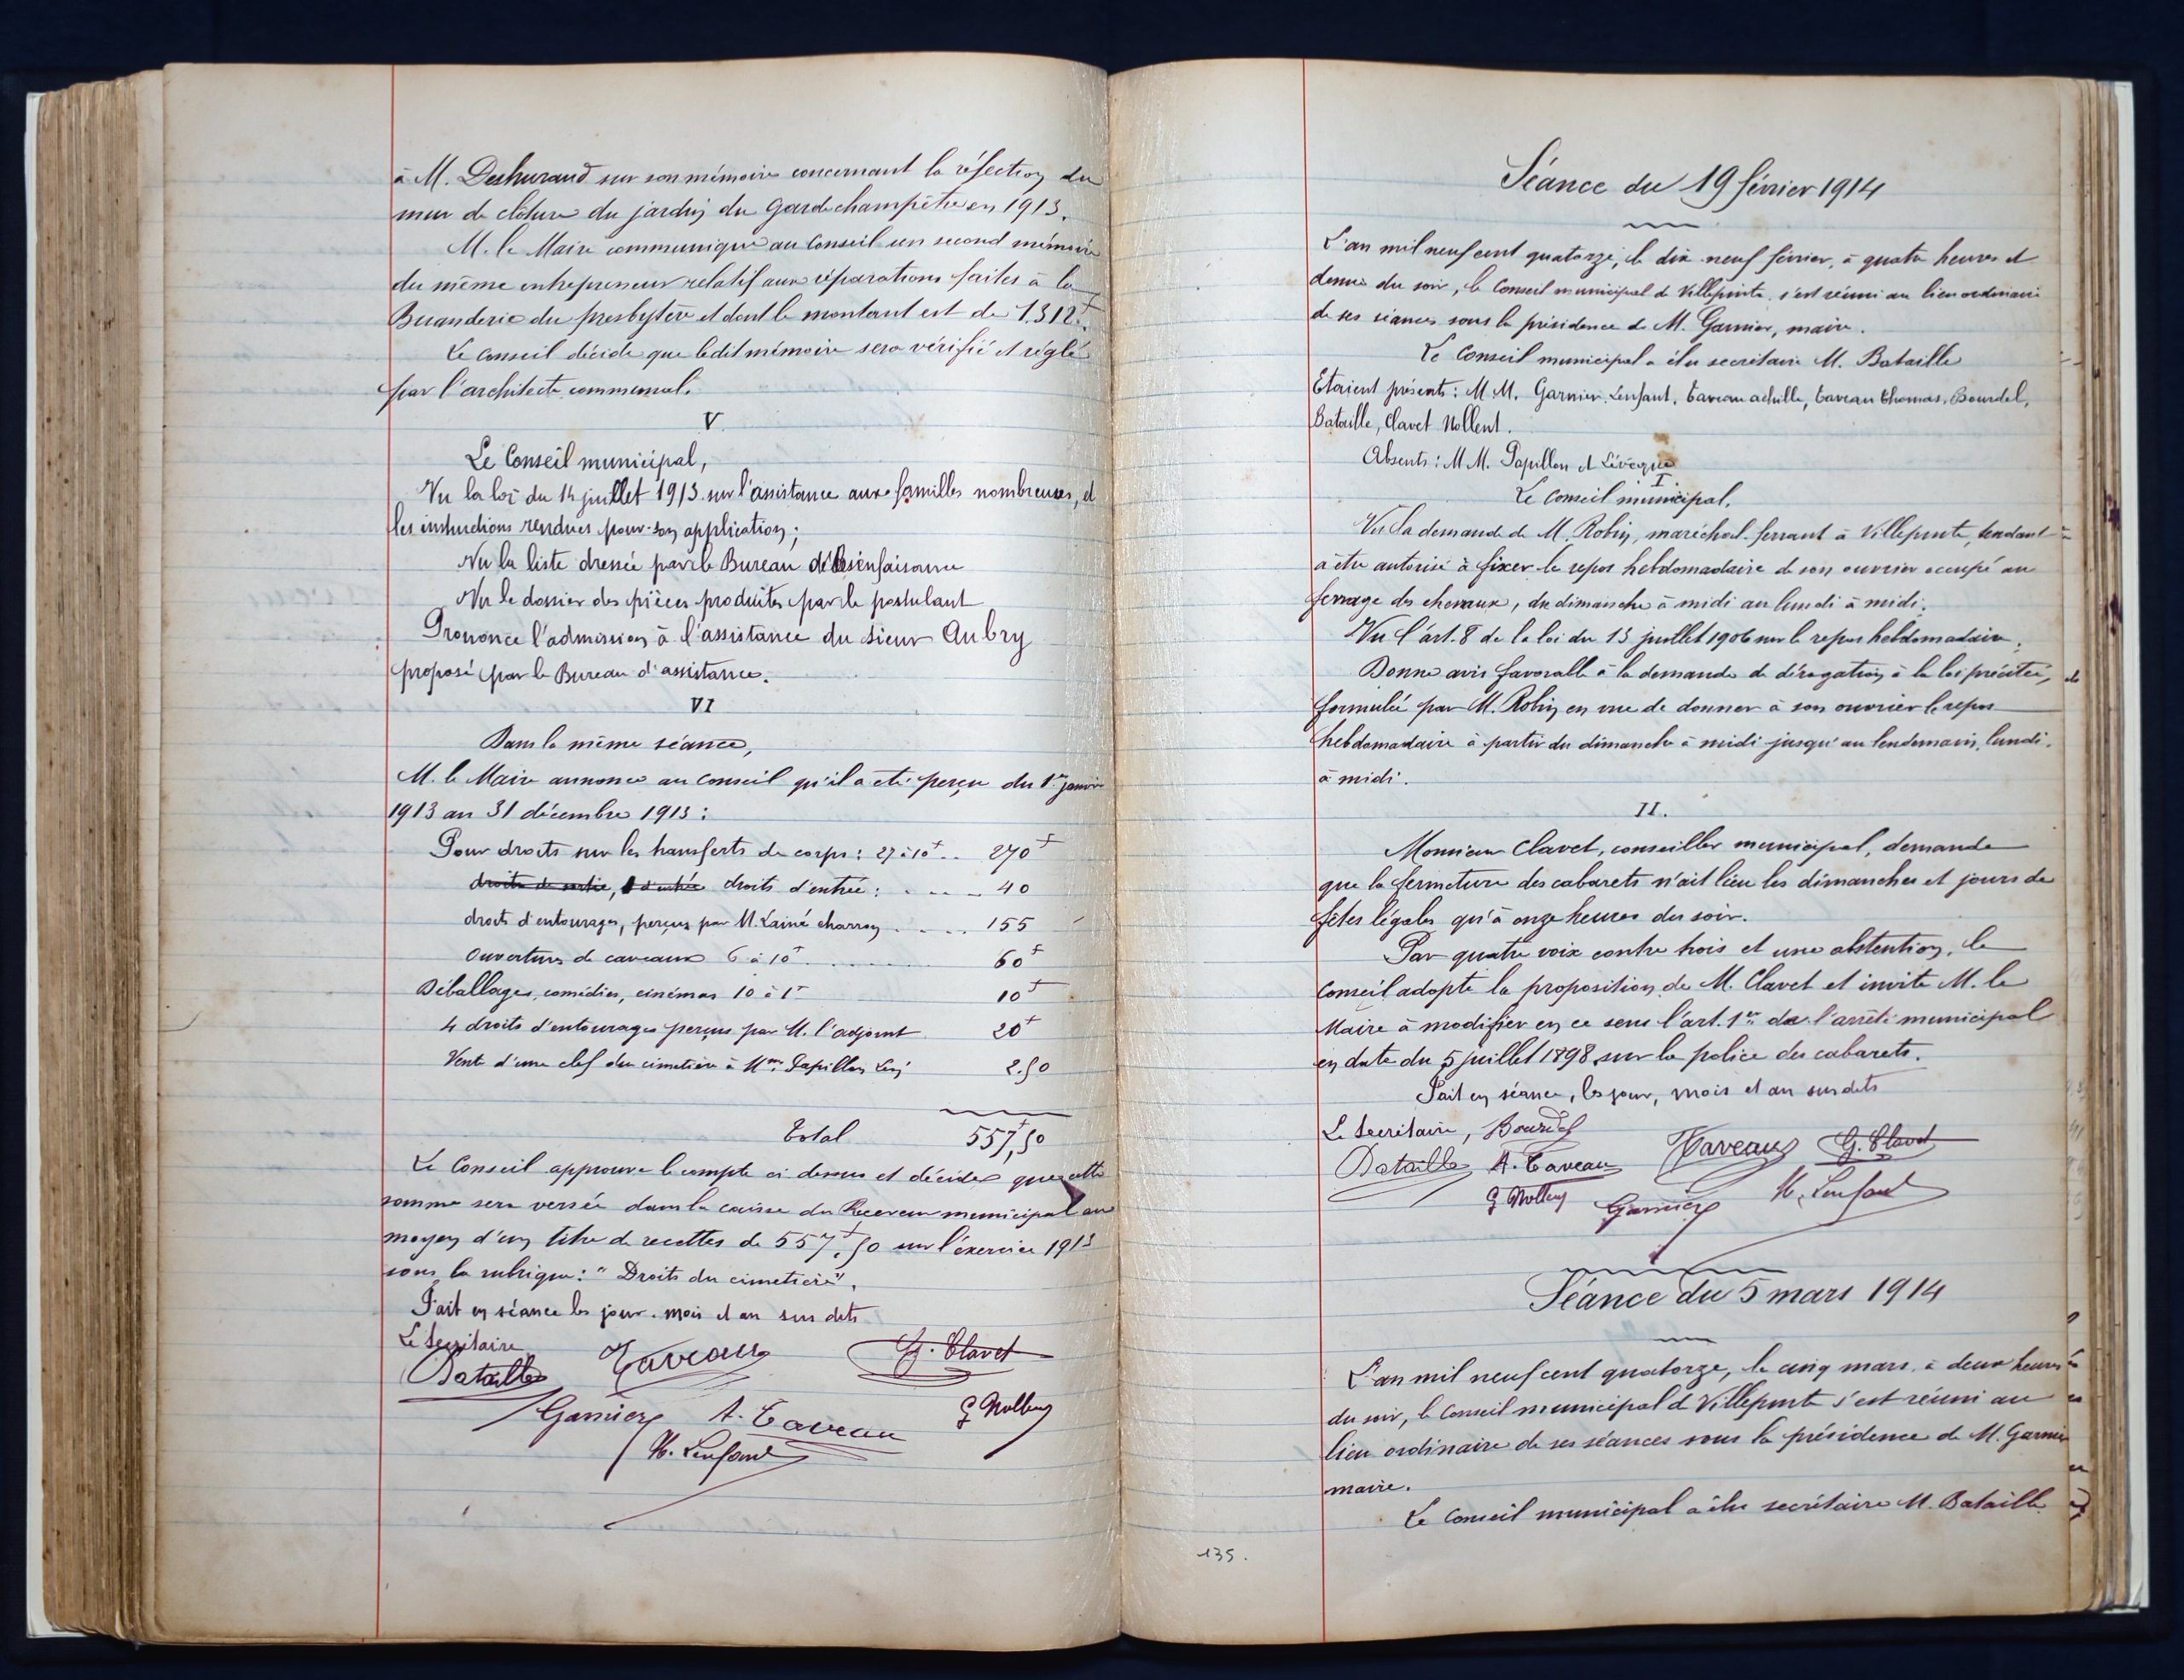 à M. Deshuraud sur son mémoire concernant la réfection du
mur de clôture du jardin du Garde champêtre en 1913.
M. le Maire communique au Conseil un second mémoire
du même entrepreneur relatif aux réparations faites à la
Buanderie du presbytère et dont le montant est de 1.312f.
Le Conseil décide que ledit mémoire sera vérifié et réglé
par l'architecte communal.
V
Le Conseil municipal,
Vu la loi du 14 juillet 1913 sur l'assistance aux familles nombreuses, et
les instructions rendues pour son application;
Vu la liste dressée par le Bureau de Bienfaisance
Vu le dossier des pièces produites par le postulant
Prononce l'admission à l'assistance du sieur Aubry
proposé par le Bureau d'assistance.
VI
Dans la même séance,
M. le Maire annonce au Conseil qu'il a été perçu du 1er janvier
1913 au 31 décembre 1913:
Pour droits sur les transferts de corps: 27 à 10f.. 270f
droits de sortie, d'entrée droits d'entrée: . . . . 40
droits d'entourages, perçus par M. Lainé charron . . . . 155
Ouvertures de caveaux 6 à 10f . . . . 60f
Déballages, comédies, cinémas 10 à 1f 10f
4 droits d'entourages perçus par M. l'adjoint 20f
Vente d'une clef du cimetière à Mme Papillon 2.50
Total 557f,50
Le Conseil approuve le compte ci-dessus et décide que cette
somme sera versée dans la caisse du Receveur municipal au
moyen d'un titre de recettes de 557f,50 sur l'exercice 1913
sous la rubrique: "Droits du cimetière".
Fait en séance les jour, mois et an sus dits
Le Secrétaire
Bataille Taveau G. Clavet
Garnier A. Taveau G Nollent
H. Lenfant
135.
Séance du 19 février 1914
L'an mil neuf cent quatorze, le dix neuf février, à quatre heures et
demie du soir, le Conseil municipal de Villepinte s'est réuni au lieu ordinaire
de ses séances sous la présidence de M. Garnier, maire.
Le Conseil municipal a élu secrétaire M. Bataille
Etaient présents: M.M. Garnier, Lenfant, Taveau achille, Taveau Thomas, Bourdel,
Bataille, Clavet Nollent.
Absents: M M. Papillon et Lévêque
I.
Le Conseil municipal,
Vu la demande de M. Robin, maréchal-ferrant à Villepinte, tendant
à être autorisé à fixer le repos hebdomadaire de son ouvrier occupé au
ferrage des chevaux, du dimanche à midi au lundi à midi.
Vu l'art. 8 de la loi du 13 juillet 1906 sur le repos hebdomadaire;
Donne avis favorable à la demande de dérogation à la loi précitée,
formulée par M. Robin en vue de donner à son ouvrier le repos
hebdomadaire à partir du dimanche à midi jusqu'au lendemain, lundi,
à midi.
II.
Monsieur Clavet, conseiller municipal, demande
que la fermeture des cabarets n'ait lieu les dimanches et jours de
fêtes légales qu'à onze heures du soir.
Par quatre voix contre trois et une abstention, le
Conseil adopte la proposition de M. Clavet et invite M. le
Maire à modifier en ce sens l'art. 1er de l'arrêté municipal
en date du 5 juillet 1898 sur la police des cabarets.
Fait en séance, les jour, mois et an sus dits
Le Secrétaire, Bourdel
Bataille A. Taveau Taveau G. Clavet
G Nollent Garnier H. Lenfant
Séance du 5 mars 1914
L'an mil neuf cent quatorze, le cinq mars, à deux heures
du soir, le Conseil municipal de Villepinte s'est réuni au
lieu ordinaire de ses séances sous la présidence de M. Garnier
maire.
Le Conseil municipal a élu secrétaire M. Bataille